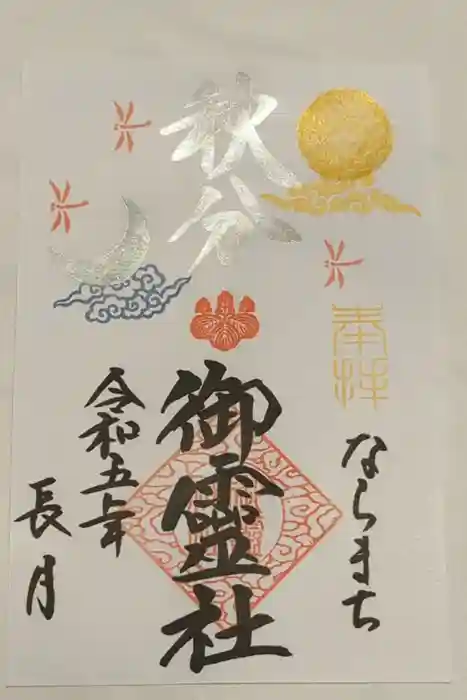 秋分
奉拝
ならまち
御靈社
令和五年
長月